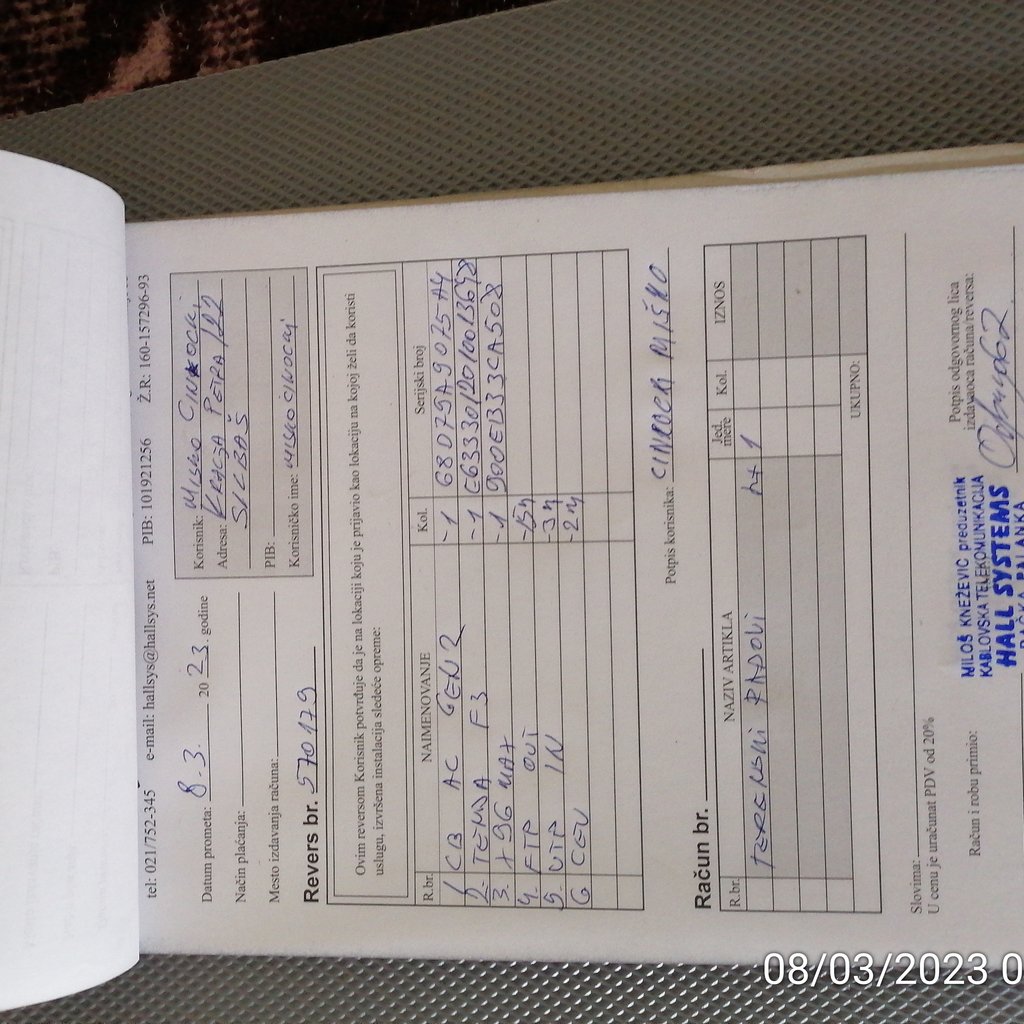 tel: 021/752-345 e-mail: hallsys@hallsys.net PIB: 101921256 Ž.R: 160-157296-93
Datum prometa: 8-3. 2023. godine
Način plaćanja:
Mesto izdavanja računa:
Korisnik: MIŠKO
Adresa: KRALJA PETRA 122
SILBAŠ
PIB:
Korisničko ime:
Revers br. 570179
Ovim reversom Korisnik potvrđuje da je na lokaciji koju je prijavio kao lokaciju na kojoj želi da koristi
uslugu, izvršena instalacija sledeće opreme:
R.br. NAIMENOVANJE Kol. Serijski broj
1 CB AC GEN2 -1
2. TENDA F3 -1
3. X96 MAX -1
4. FTP OUT
5. UTP IN
6
Potpis korisnika: MIŠKO
Račun br.
R.br. NAZIV ARTIKLA Jed. mere Kol. IZNOS
TERENSKI RADOVI h+ 1
UKUPNO:
Slovima:
U cenu je uračunat PDV od 20%
Račun i robu primio:
Potpis odgovornog lica
izdavaoca računa/reversa:
MILOŠ KNEŽEVIĆ preduzetnik
KABLOVSKA TELEKOMUNIKACIJA
HALL SYSTEMS
BAČKA PALANKA
08/03/2023 0